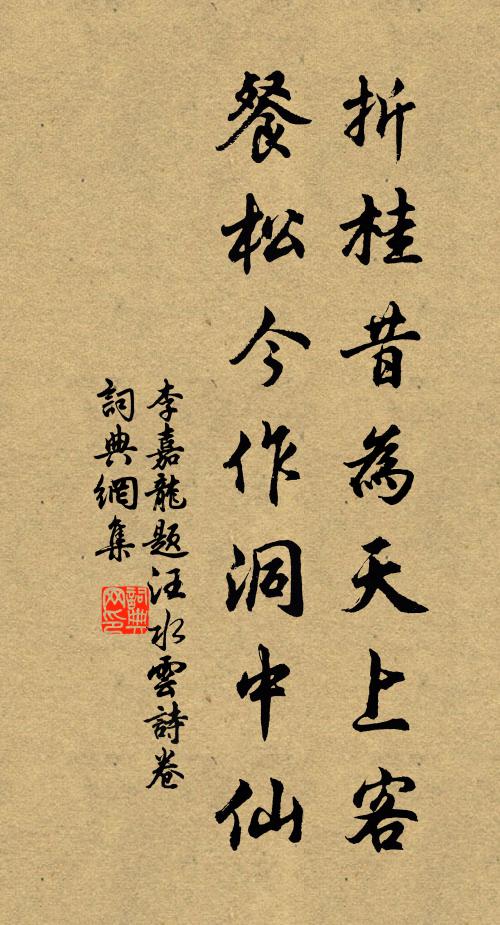 折桂昔為天上客
餐松今作洞中仙
李嘉龍題汪水雲詩卷
詞典網集
詞典網印